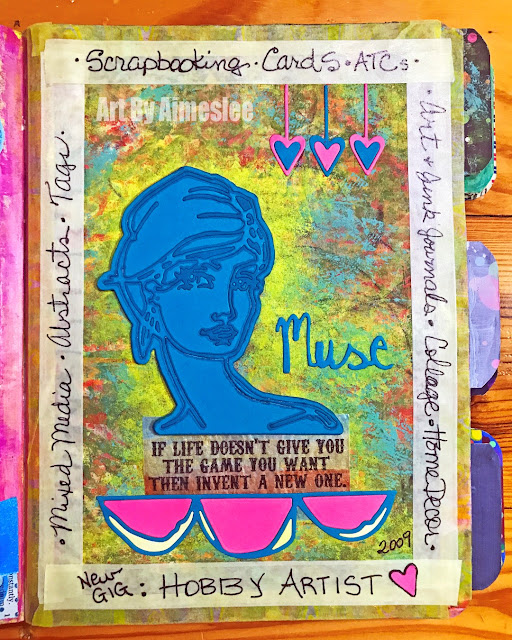 · Scrapbooking · Cards · ATCs ·
Art By Aimeslee
· Mixed Media · Abstracts · Tags ·
Art & Junk Journals · Collage · Home Decor ·
Muse
IF LIFE DOESN'T GIVE YOU
THE GAME YOU WANT
THEN INVENT A NEW ONE.
2009
New
GIG : HOBBY ARTIST